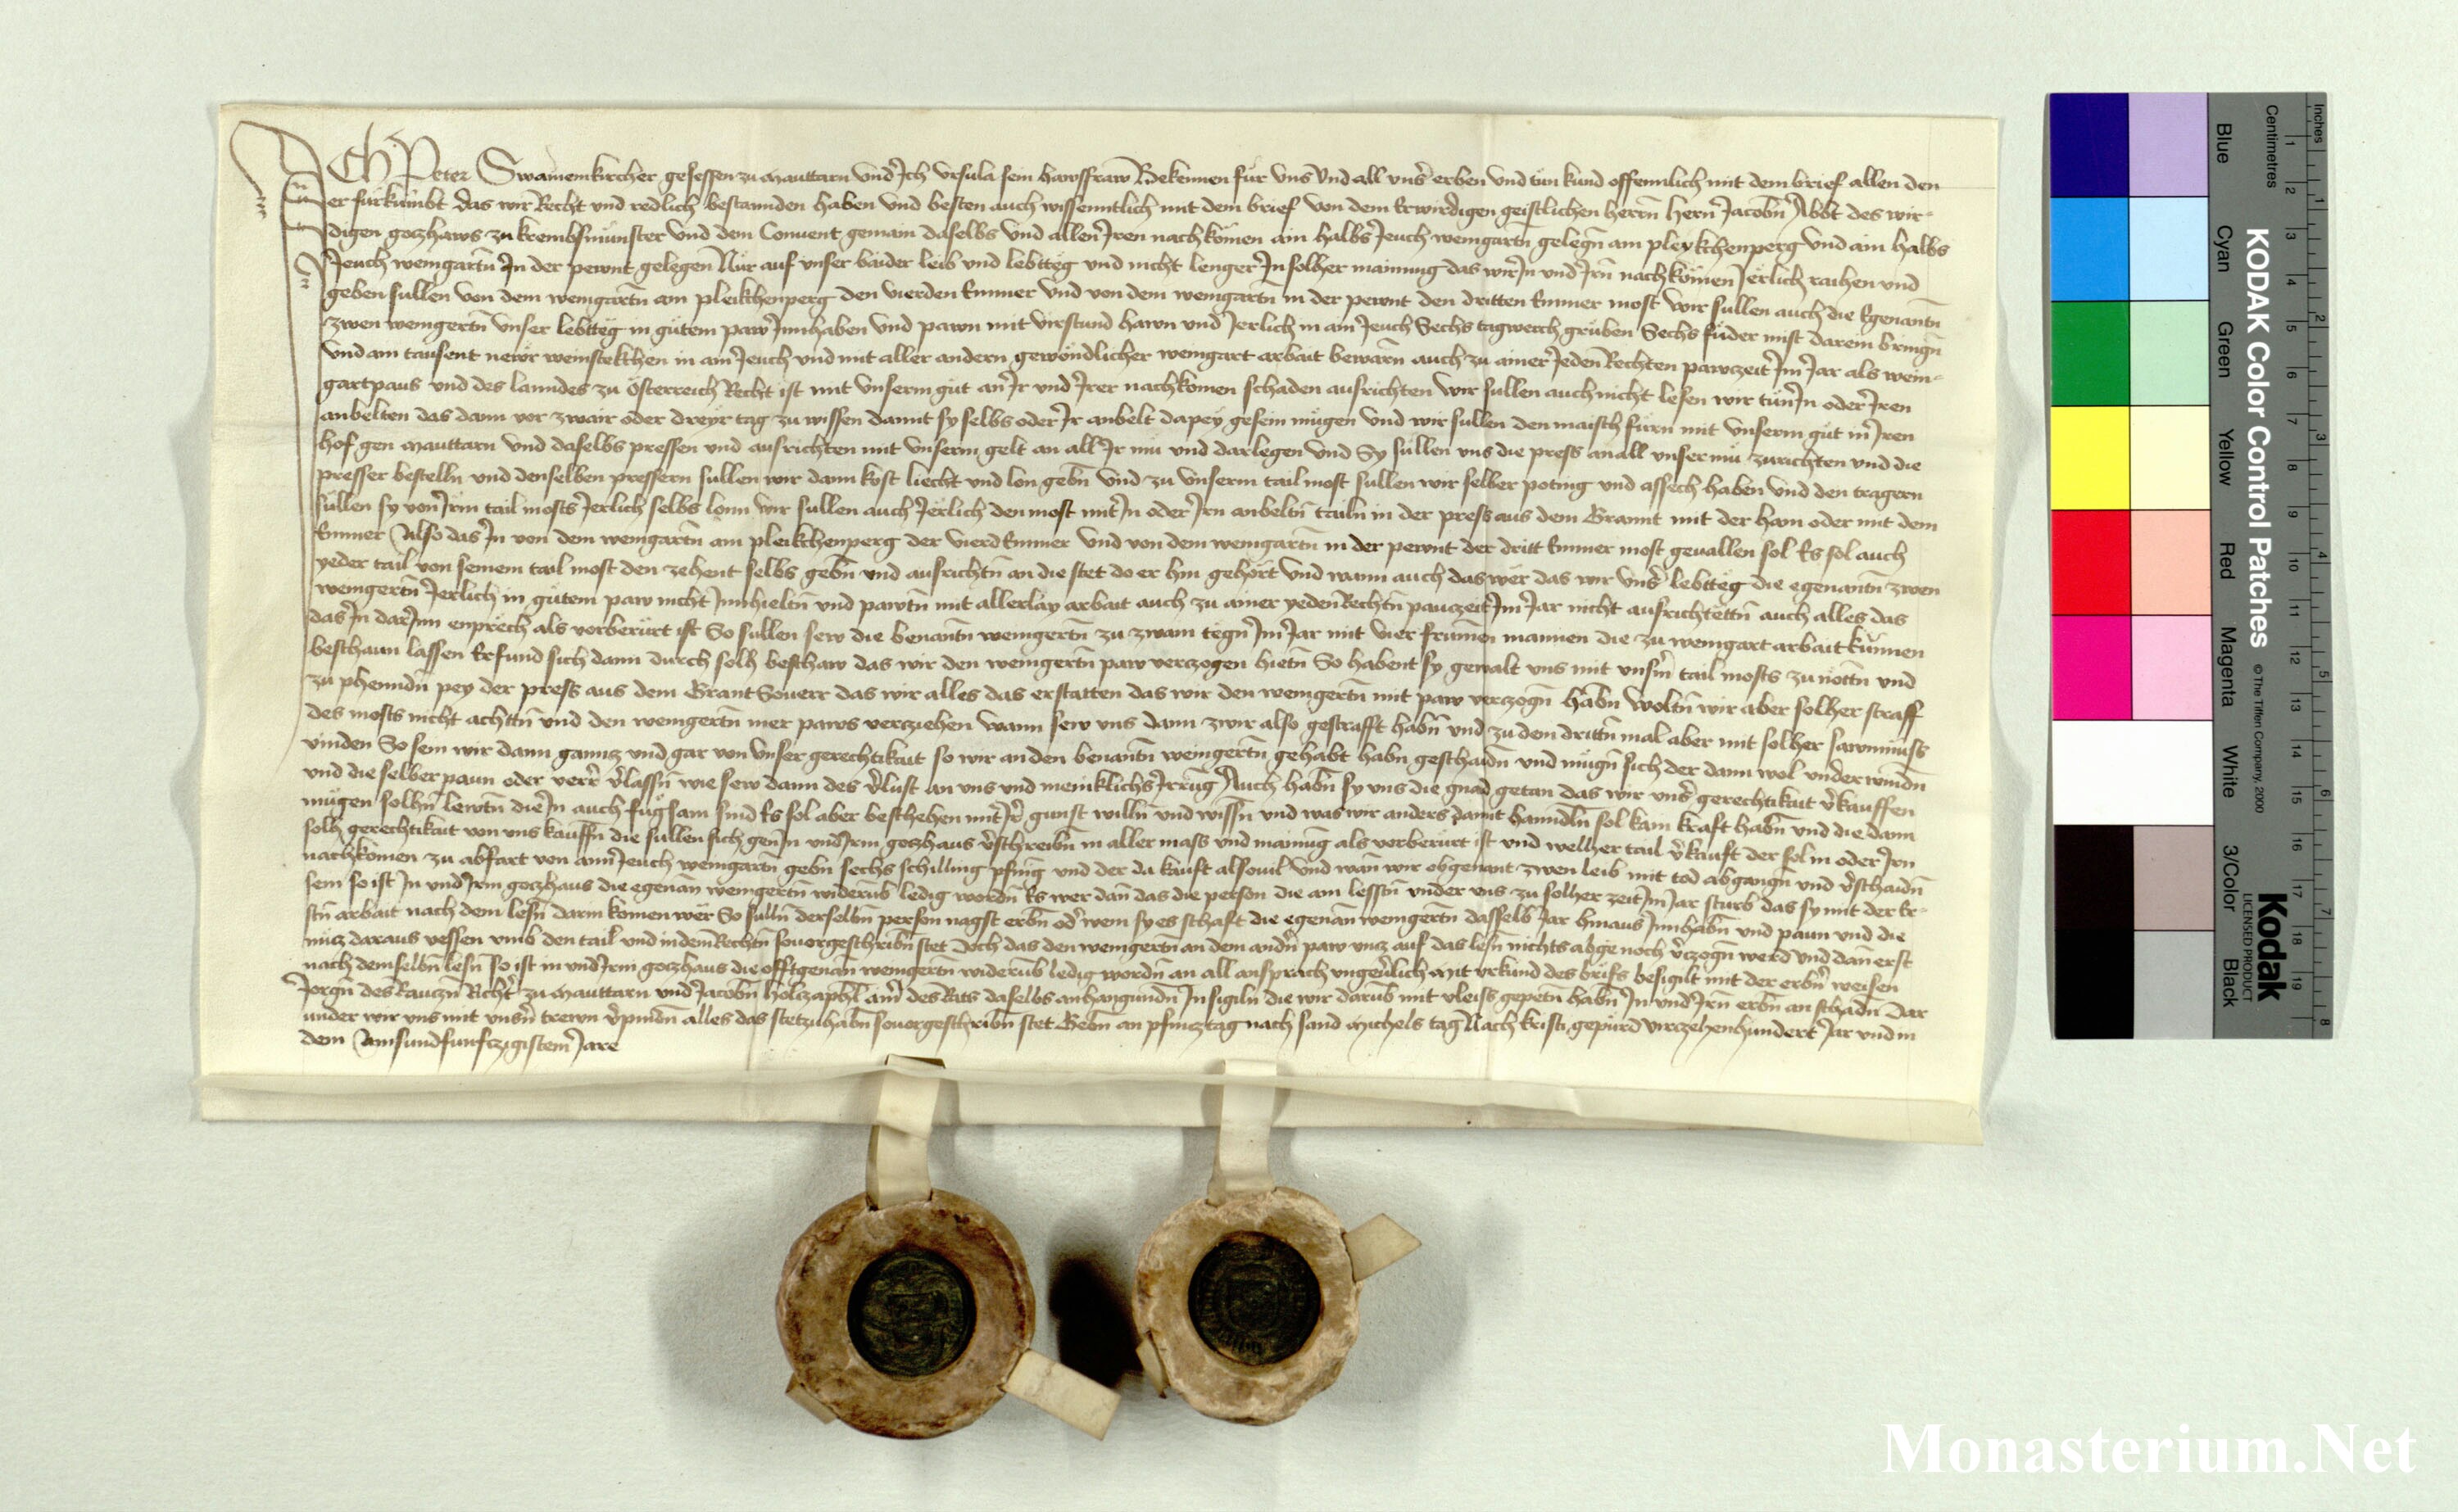 ICh Peter Swaincmkircher gesessen zu Mauttarn und Ich Ursula sein hawsfraw Bekennen für uns und all unser erben und tun kund offennlich mit dem brief allen den
er fürkümbt das wir Recht und redlich bestannden haben und besten auch wissenntlich mit dem brief von dem Erwirdigen geistlichen herrn hern Jacobn Abbt des wir-
digen gotzhaws zu krembsmünster und dem Convent gemain daselbs und allen Iren nachkömen ain halbs Jeuch weingartn gelegn am pleykchenperg und ain halbs
Jeuch weingartn In der pewnt gelegen Nur auf unser baider leib und lebtteg und nicht lenger In solher mainung das wir In und Irn nachkömen Jerlich raihen und
geben sullen von dem weingartn am pleikchenperg den vierden Emmer und von dem weingartn in der pewnt den dritten Emmer most wir sullen auch die Egenantn
zwen weingertn unser lebtteg in gutem paw Innhaben und pawn mit virstund hawn und Jerlich in aim Jeuch Sechs tagwerch gruben Sechs fuder mist darein bringn
und ain tausent newr weinstekchen in ain Jeuch und mit aller andern gewöndlicher weingart arbait bewarn auch zu ainer Jeden Rechten pawzeit Im Jar als wein-
gartpaus und des lanndes zu Österreich Recht ist mit unserm gut an Ir und Irer nachkömen schaden ausrichten wir sullen auch nicht lesen wir tun In oder Iren
anbelten das dann vor zwair oder dreyr tag zu wissen damit sy selbs oder Ir anbelt dapey gesein mügen und wir sullen den maisch fürn mit unserm gut in Iren
hof gen Mauttarn und daselbs pressen und ausrichten mit unserm gelt an all Ir mü und darlegen und Sy sullen uns die press an all unser mü zurichten und die
presser bestelln und denselben pressern sullen wir dann kost liecht und lon gebn und zu unserm tail most sullen wir selber poting und assech haben und den tragern
sullen sy von Irm tail mosts Jerlich selbs lonn wir sullen auch Jerlich den most mit In oder Irn anbeltn tailn in der press aus dem Grannt mit der ham oder mit dem
Emmer Also das In von dem weingartn am pleikchenperg der vierd Emmer und von dem weingartn in der pewnt der dritt Emmer most gevallen sol Es sol auch
yeder tail von seinem tail most den zehent selbs gebn und ausrichtn an die stet do er hin gehört und wann auch das wer das wir unser lebtteg die egenantn zwen
weingertn Jerlich in gutem paw nicht Innhieltn und pawtn mit allerlay arbait auch zu ainer yeden Rechtn pauzeit Im Jar nicht ausrichtettn auch alles das
das In darInn enprech als vorberürt ist So sullen sew die benantn weingertn zu zwain tegn Im Jar mit vier frumen mannen die zu weingart arbait künnen
beschaun lassen Erfund sich dann durch solh beschaw das wir den weingertn paw verzogen hietn So habent sy gewalt uns mit unserm tail mosts zu nöttn und
zu phenndn pey der press aus dem Grant Souerr das wir alles das erstatten das wir den weingertn mit paw verzogn habn woltn wir aber solher straff
des mosts nicht achttn und den weingertn mer paws verziehen wann sew uns dann zwir also gestrafft habn und zu dem drittn mal aber mit solher sawmnuss
vinden So sein wir dann ganntz und gar von unser gerechtikait so wir an den benantn weingertn gehabt habn geschaidn und mügn sich der dann wol underwindn
und die selber paun oder verr verlassn wie sew dann des verlust an uns und meniklichs Irrung Auch habn sy uns die gnad getan das wir unser gerechtikait verkauffen
mügen solhn lewtn die In auch fugsam sind Es sol aber beschehen mit Ir gunst willn und wissn und was wir anders damit hanndln sol kain kraft habn und die dann
solh gerechtikait von uns kauffn die sullen sich gen In und Irm gotzhaus verschreibn in aller mass und mainung als vorberürt ist und welher tail verkauft der sol in oder Irn
nachkömen zu abfart von aim Jeuch weingartn gebn sechs schilling pfenig und der da kauft alsouil und wan wir obgenant zwen leib mit tod abgangn und verschaidn
sein so ist In und Irm gotzhaus die egenan weingertn widerumb ledig wordn Es wer dan das die person die am lesstn under uns zu solher zeit Im Jar sturb das sy mit der er-
stn arbait nach dem lesn darin komen wer So sulln derselbn person nagst erbn oder wem sy es schaft die egenan weingertn dasselb Jar hinaus Innhabn und paun und die
nutz daraus vessen umb den tail und in dem Rechtn so vorgeschribn stet Doch das den weingertn an dem andern paw untz auf das lesn nichts abge noch verzogn werd und dan erst
nach demselbn lesn so ist in und Irm gotzhaus die offtgenan weingertn widerumb ledig wordn an all ansprach ungeuerlich Mit urkund des briefs besigilt mit der erbern weisen
Jorgn des Rauzn Richter zu Mauttarn und Jacobn holczaphl ainer des Rats daselbs anhangundn Insigiln die wir darumb mit vleiss gepetn habn In und Irn erbn an schadn Dar
under wir uns mit unsern trewn verpindn alles das stet zuhabn so vorgeschribn stet Gebn an pfincztag nach sand Michels tag Nach kristi gepürd vierzehenhundert Jar und in
dem Ainsundfunftzigistem Jare
KODAK Color Control Patches
© The Tiffen Company, 2000
Kodak
LICENSED PRODUCT
Inches
Centimetres
Blue
Cyan
Green
Yellow
Red
Magenta
White
3/Color
Black
Monasterium.Net